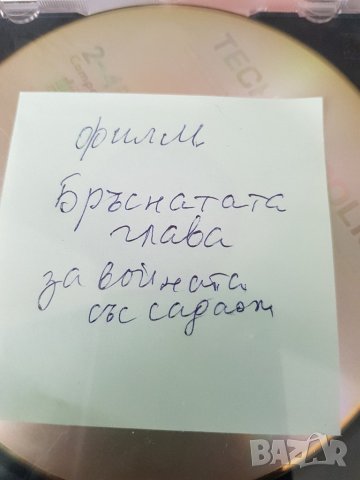 филм
Бръснатата
глава
за войната
със садам
TECH
BAZAR